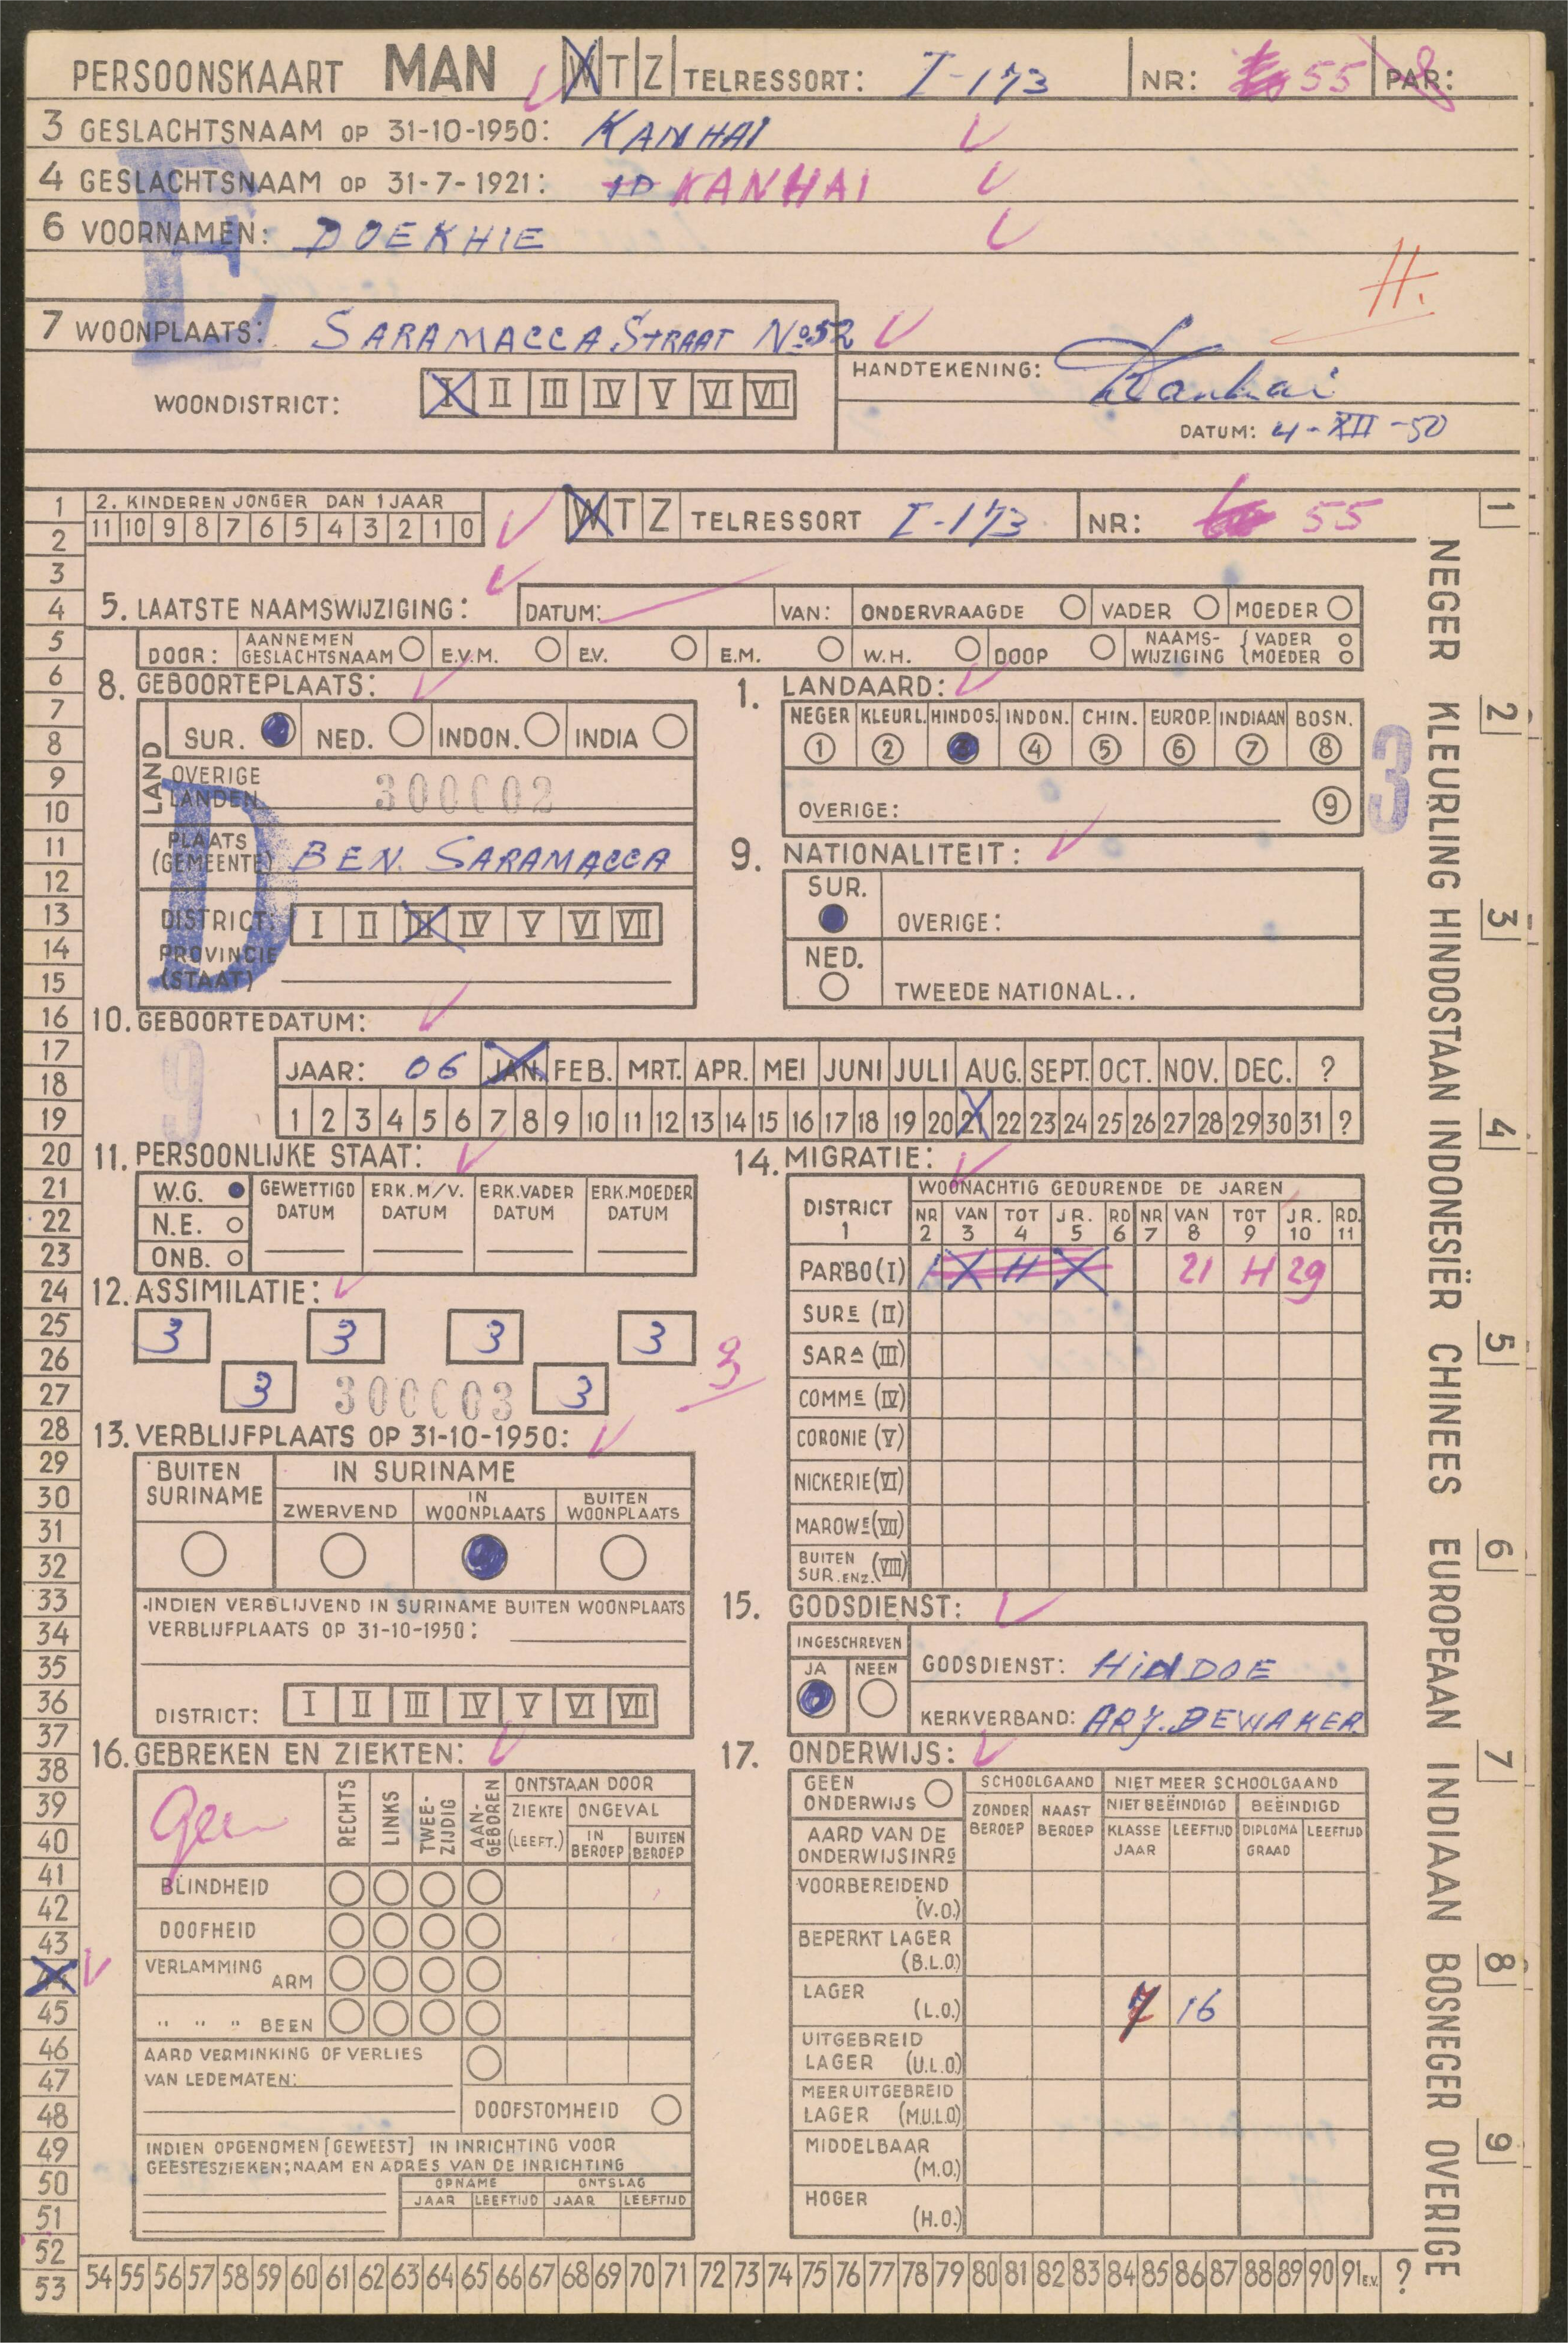 PERSOONSKAART MAN W T Z TELRESSORT: I-173 NR: 55 PAR:
3 GESLACHTSNAAM OP 31-10-1950: KANHAI
4 GESLACHTSNAAM OP 31-7-1921: ID KANHAI
6 VOORNAMEN: DOEKHIE
E
H.
7 WOONPLAATS: SARAMACCA STRAAT No 52
HANDTEKENING: Kanhai
WOONDISTRICT: I II III IV V VI VII
DATUM: 4-XII-50
2. KINDEREN JONGER DAN 1 JAAR
11 10 9 8 7 6 5 4 3 2 1 0
W T Z TELRESSORT I-173 NR: 55
5. LAATSTE NAAMSWIJZIGING: DATUM: VAN: ONDERVRAAGDE VADER MOEDER
DOOR: AANNEMEN GESLACHTSNAAM E.V.M. E.V. E.M. W.H. DOOP NAAMS-WIJZIGING { VADER MOEDER
8. GEBOORTEPLAATS:
LAND SUR. NED. INDON. INDIA
OVERIGE LANDEN 300002
PLAATS (GEMEENTE) BEN. SARAMACCA
D
DISTRICT: I II III IV V VI VII
PROVINCIE (STAAT)
1. LANDAARD:
NEGER KLEURL. HINDOS. INDON. CHIN. EUROP. INDIAAN BOSN.
1 2 3 4 5 6 7 8
OVERIGE: 9
3
9. NATIONALITEIT:
SUR. OVERIGE:
NED. TWEEDE NATIONAL..
10. GEBOORTEDATUM:
9
JAAR: 06 JAN. FEB. MRT. APR. MEI JUNI JULI AUG. SEPT. OCT. NOV. DEC. ?
1 2 3 4 5 6 7 8 9 10 11 12 13 14 15 16 17 18 19 20 21 22 23 24 25 26 27 28 29 30 31 ?
11. PERSOONLIJKE STAAT:
W.G. GEWETTIGD DATUM ERK.M/V. DATUM ERK.VADER DATUM ERK.MOEDER DATUM
N.E.
ONB.
12. ASSIMILATIE:
3 3 3 3
3 300003 3
3
13. VERBLIJFPLAATS OP 31-10-1950:
BUITEN SURINAME IN SURINAME
ZWERVEND IN WOONPLAATS BUITEN WOONPLAATS
INDIEN VERBLIJVEND IN SURINAME BUITEN WOONPLAATS
VERBLIJFPLAATS OP 31-10-1950:
DISTRICT: I II III IV V VI VII
14. MIGRATIE:
DISTRICT 1 WOONACHTIG GEDURENDE DE JAREN
NR 2 VAN 3 TOT 4 JR. 5 RD 6 NR 7 VAN 8 TOT 9 JR. 10 RD. 11
PAR'BO (I) 1 X H X 21 H 29
SURE (II)
SARA (III)
COMME (IV)
CORONIE (V)
NICKERIE (VI)
MAROWE (VII)
BUITEN SUR. ENZ. (VIII)
15. GODSDIENST:
INGESCHREVEN JA NEEN
GODSDIENST: HINDOE
KERKVERBAND: ARJ. DEWAKER
16. GEBREKEN EN ZIEKTEN:
Geen
RECHTS LINKS TWEE-ZIJDIG AAN-GEBOREN
ONTSTAAN DOOR
ZIEKTE (LEEFT.) ONGEVAL
IN BEROEP BUITEN BEROEP
BLINDHEID
DOOFHEID
VERLAMMING ARM
" " " BEEN
AARD VERMINKING OF VERLIES
VAN LEDEMATEN:
DOOFSTOMHEID
INDIEN OPGENOMEN [GEWEEST] IN INRICHTING VOOR
GEESTESZIEKEN; NAAM EN ADRES VAN DE INRICHTING
OPNAME ONTSLAG
JAAR LEEFTIJD JAAR LEEFTIJD
17. ONDERWIJS:
GEEN ONDERWIJS SCHOOLGAAND NIET MEER SCHOOLGAAND
ZONDER BEROEP NAAST BEROEP NIET BEËINDIGD BEËINDIGD
AARD VAN DE ONDERWIJSINRG KLASSE JAAR LEEFTIJD DIPLOMA GRAAD LEEFTIJD
VOORBEREIDEND (V.O.)
BEPERKT LAGER (B.L.O.)
LAGER (L.O.) 7 16
UITGEBREID LAGER (U.L.O.)
MEER UITGEBREID LAGER (M.U.L.O.)
MIDDELBAAR (M.O.)
HOGER (H.O.)
1
2
3
4
5
6
7
8
9
10
11
12
13
14
15
16
17
18
19
20
21
22
23
24
25
26
27
28
29
30
31
32
33
34
35
36
37
38
39
40
41
42
43
44
45
46
47
48
49
50
51
52
53
54 55 56 57 58 59 60 61 62 63 64 65 66 67 68 69 70 71 72 73 74 75 76 77 78 79 80 81 82 83 84 85 86 87 88 89 90 91 E.V. ?
NEGER KLEURLING HINDOSTAAN INDONESIËR CHINEES EUROPEAAN INDIAAN BOSNEGER OVERIGE
1 2 3 4 5 6 7 8 9